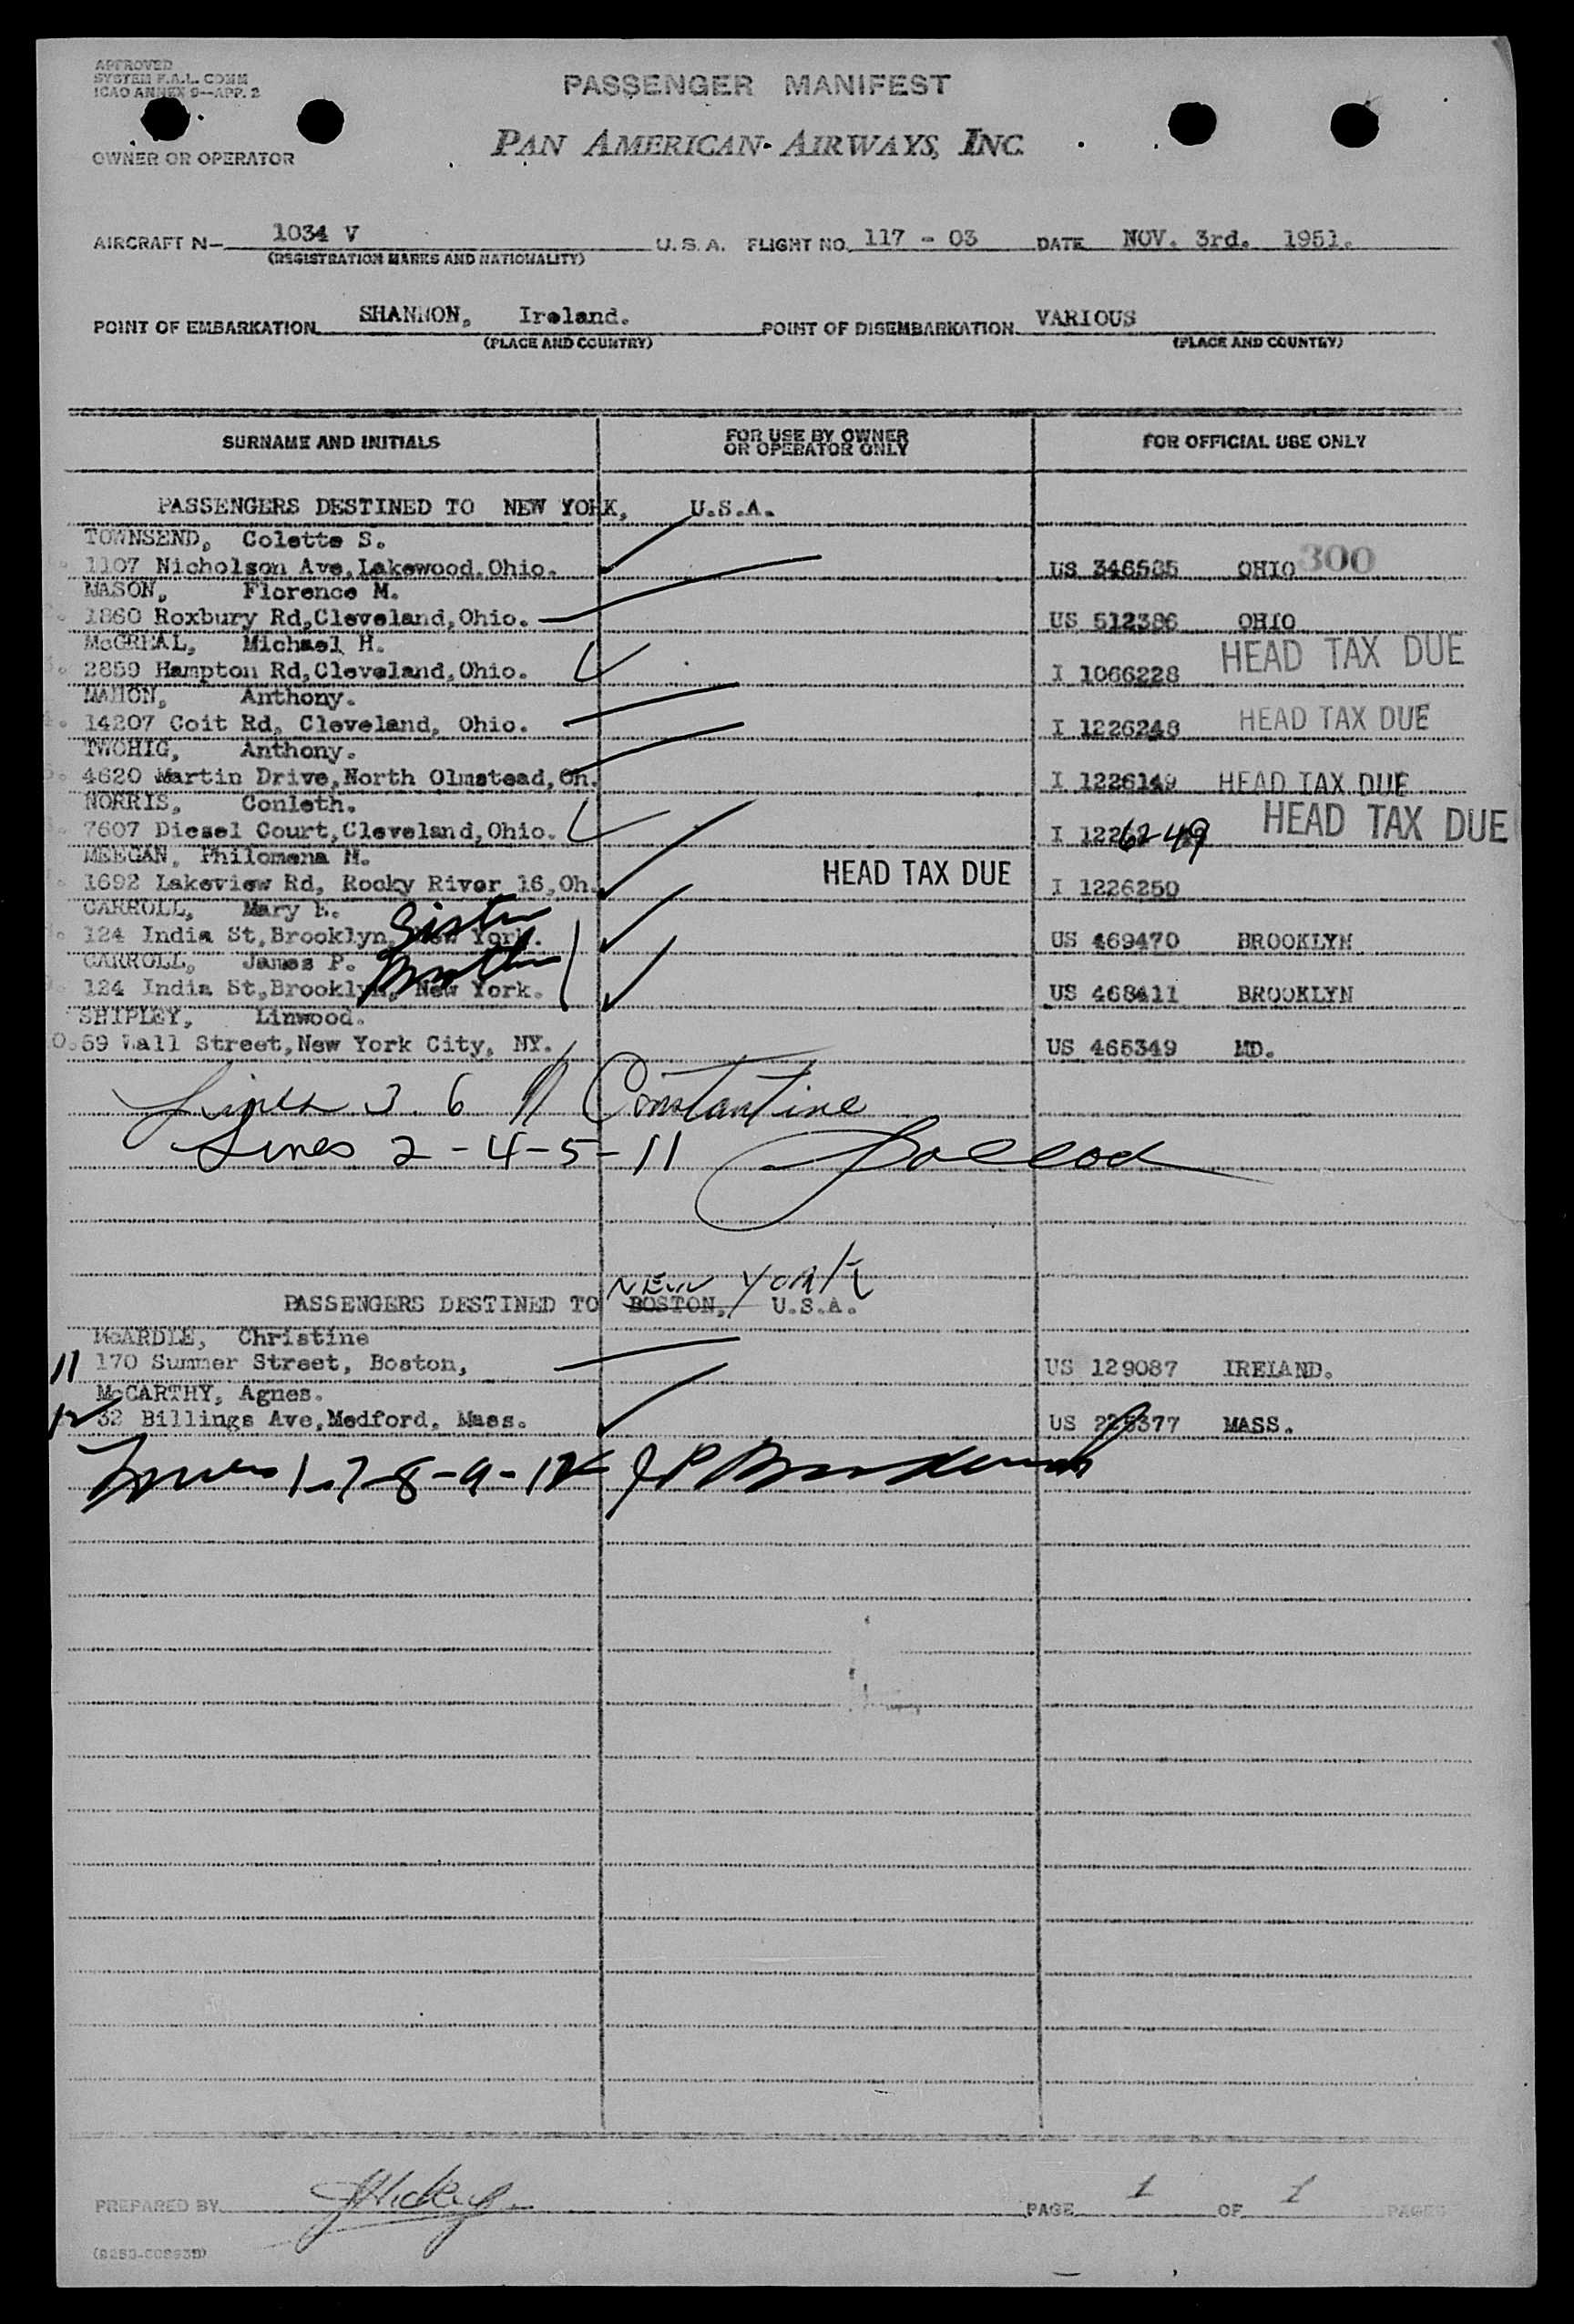 APPROVED
SYSTEM F.A.L. COMM
ICAO ANNEX 9--APP. 2
PASSENGER MANIFEST
OWNER OR OPERATOR
PAN AMERICAN AIRWAYS, INC.
AIRCRAFT N- 1034 V U.S.A. FLIGHT NO. 117 - 03 DATE NOV. 3rd. 1951.
(REGISTRATION MARKS AND NATIONALITY)
POINT OF EMBARKATION SHANNON, Ireland. POINT OF DISEMBARKATION VARIOUS
(PLACE AND COUNTRY) (PLACE AND COUNTRY)
SURNAME AND INITIALS FOR USE BY OWNER OR OPERATOR ONLY FOR OFFICIAL USE ONLY
PASSENGERS DESTINED TO NEW YORK, U.S.A.
TOWNSEND, Colette S.
1107 Nicholson Ave, Lakewood, Ohio. US 346535 OHIO 300
MASON, Florence M.
1860 Roxbury Rd, Cleveland, Ohio. US 512386 OHIO
McGREAL, Michael H.
2859 Hampton Rd, Cleveland, Ohio. I 1066228 HEAD TAX DUE
MAHON, Anthony.
14207 Coit Rd, Cleveland, Ohio. I 1226248 HEAD TAX DUE
TWOHIG, Anthony.
4620 Martin Drive, North Olmstead, Oh. I 1226149 HEAD TAX DUE
NORRIS, Conleth.
7607 Diesel Court, Cleveland, Ohio. I 1226249 HEAD TAX DUE
MEEGAN, Philomena M.
1692 Lakeview Rd, Rocky River 16, Oh. HEAD TAX DUE I 1226250
CARROLL, Mary E. Sister
124 India St, Brooklyn, New York. US 469470 BROOKLYN
CARROLL, James P. Brother
124 India St, Brooklyn, New York. US 468411 BROOKLYN
SHIPLEY, Linwood.
59 Wall Street, New York City, NY. US 465349 MD.
Lines 3 6 Constantine
Lines 2 - 4 - 5 - 11
NEW YORK
PASSENGERS DESTINED TO BOSTON, U.S.A.
McARDLE, Christine
11 170 Summer Street, Boston, US 129087 IRELAND.
McCARTHY, Agnes.
12 32 Billings Ave, Medford, Mass. US 225377 MASS.
Lines 1-7-8-9-12
PREPARED BY PAGE 1 OF 1 PAGES